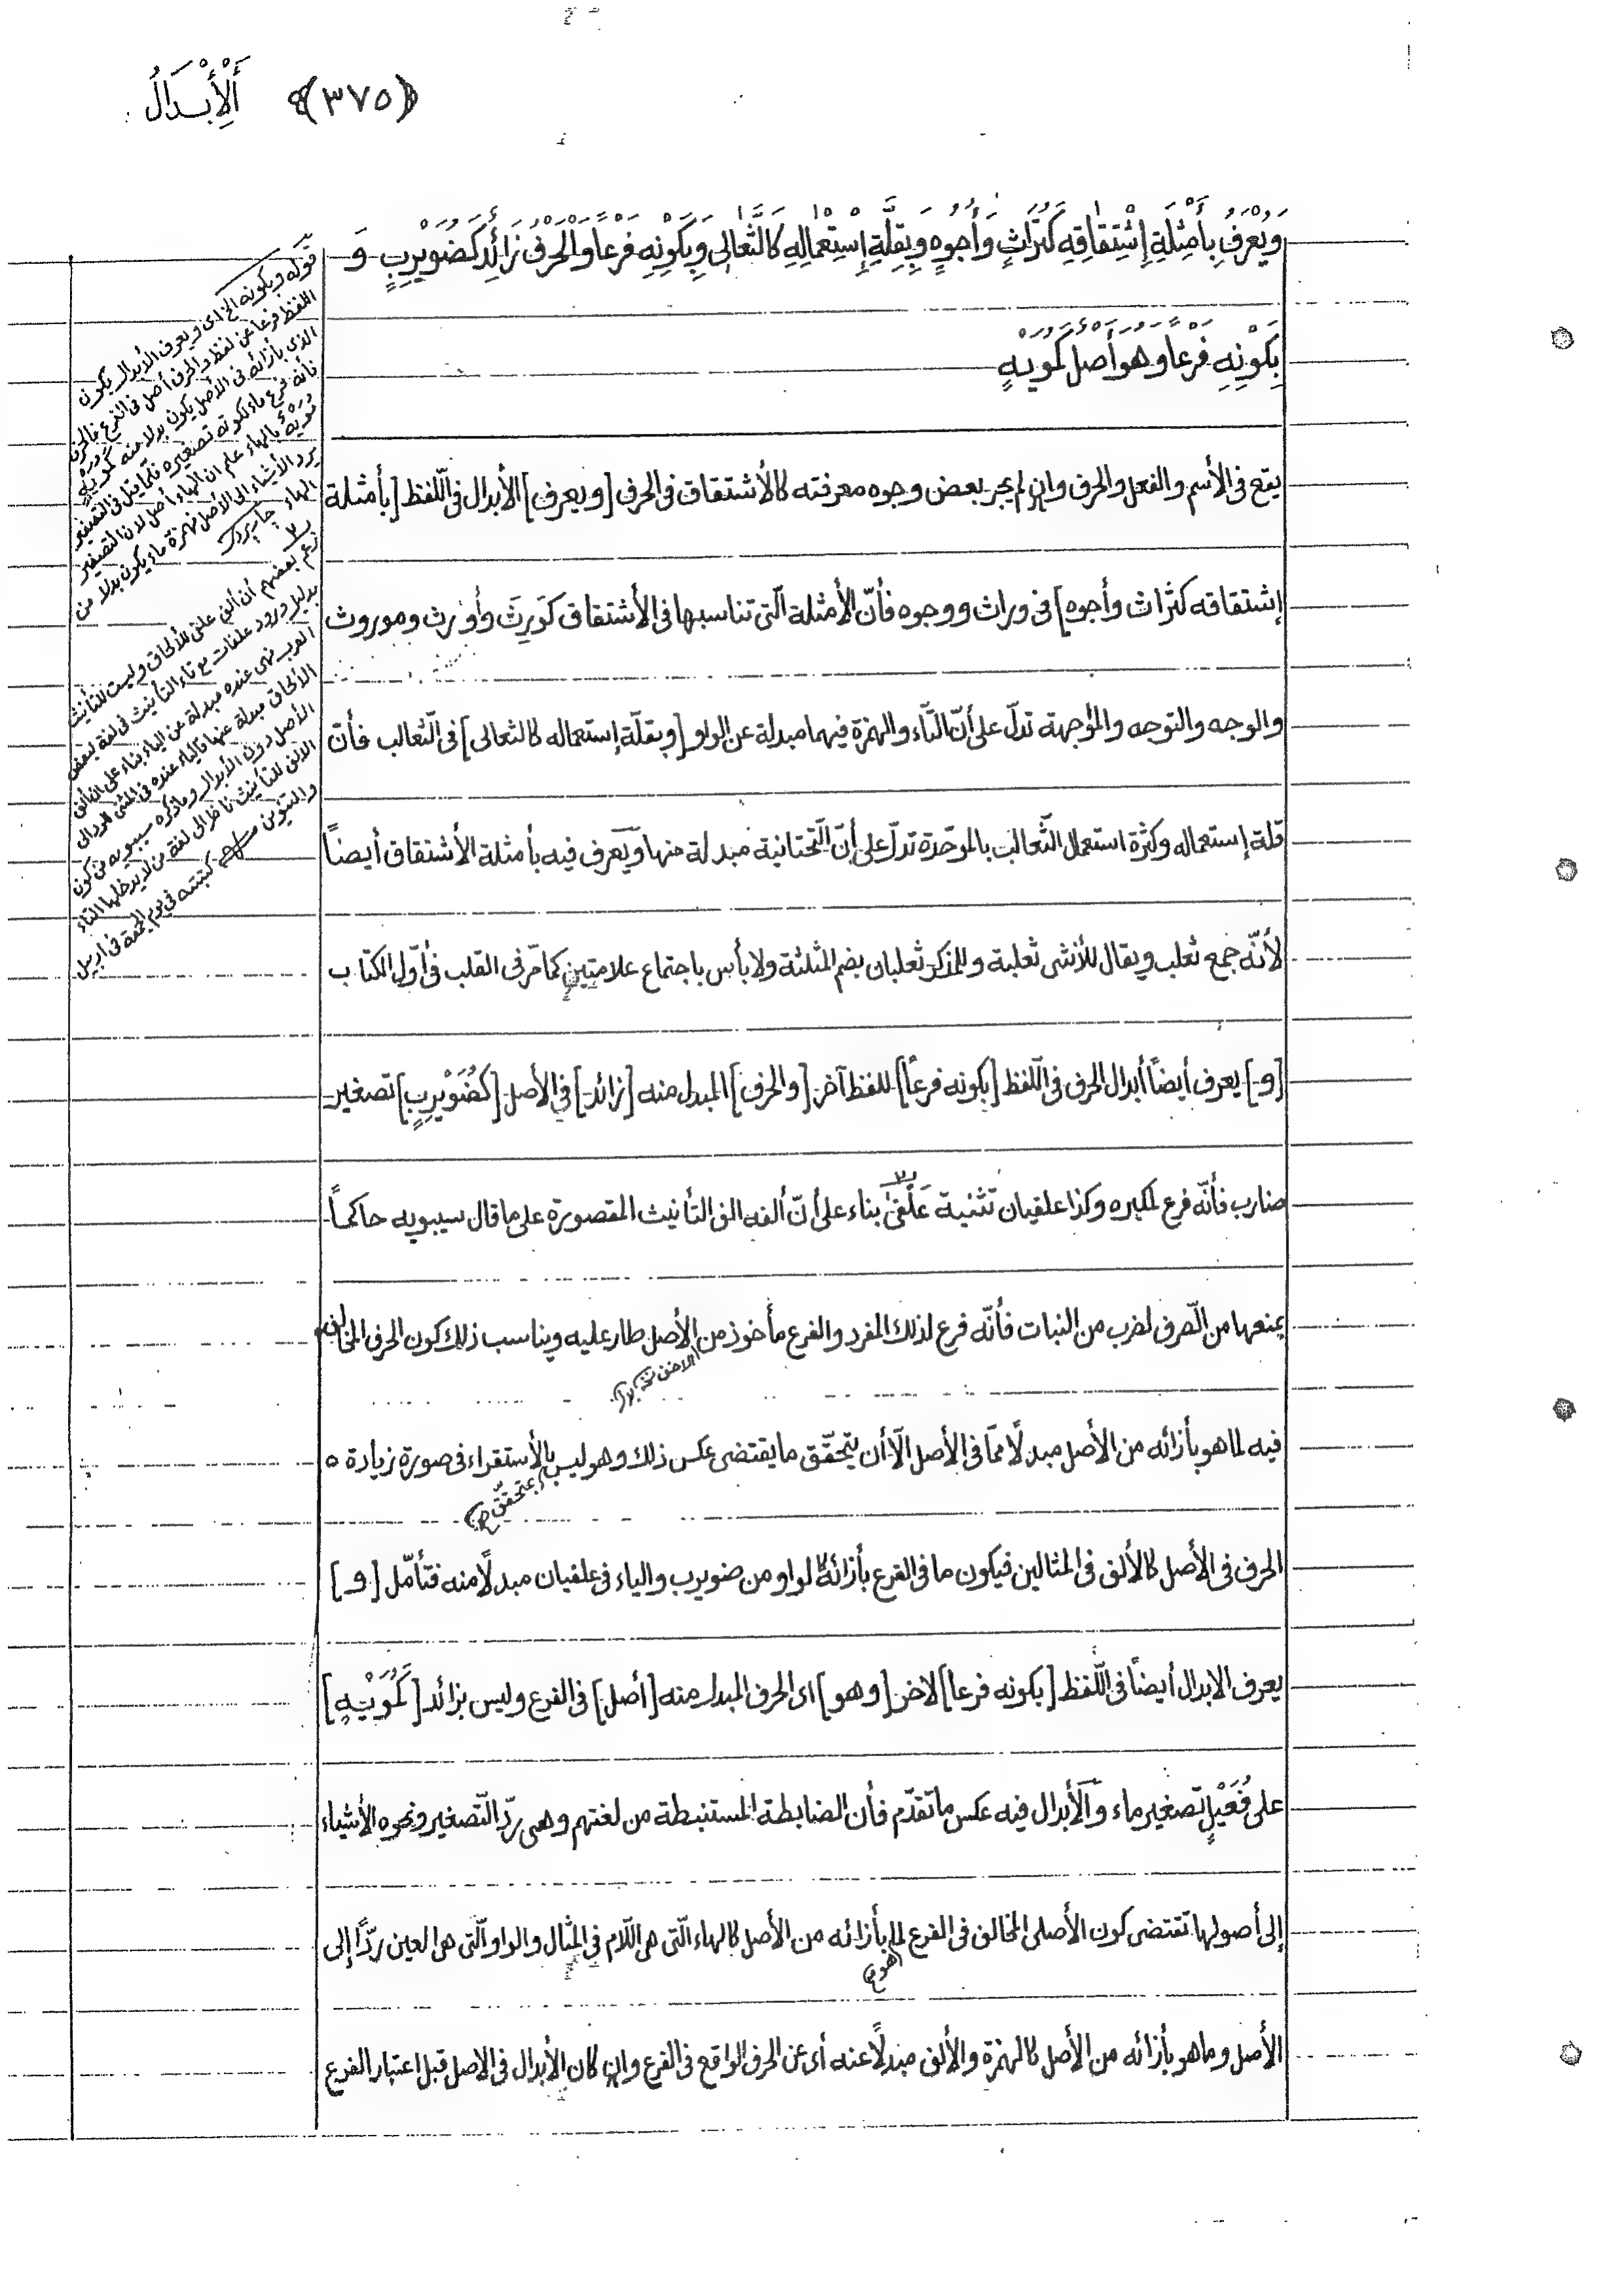 ﴿٣٧٥﴾ أَلْأِبْدَالُ
وَيُعْرَفُ بِأَمْثِلَةِ إِشْتِقَاقِهِ كَتُرَاثٍ وَأُجُوهٍ وَبِقِلَّةِ إِسْتِعْمَالِهِ كَالثَّعَالِى وَبِكَوْنِهِ فَرْعًا وَالْحَرْفُ زَائِدٌ كَضُوَيْرِبٍ وَ
بِكَوْنِهِ فَرْعًا وهو أَصل كَمُوَيْهٍ
يقع فى الأسم والفعل والحرف وان لم يجر بعض وجوه معرفته كالأشتقاق فى الحرف [ويعرف] الأبدال فى اللّفظ [بأمثلة
إشتقاقه كتراث وأجوه] فى وراث ووجوه فأنّ الأمثلة الّتى تناسبها فى الأشتقاق كَوَرِثَ وأورث وموروث
والوجه والتوجه والمؤجهة تدلّ على أنّ التّاء والهمزة فيهما مبدلة عن الواو [وبقلّة إستعماله كالثعالى] فى الثّعالب فأنّ
قلة إستعماله وكثرة استعمال الثّعالب بالموحّدة تدلّ على أنّ التّحتانية مبدلة منها ويعرف فيه بأمثلة الأشتقاق أيضاً
لأنّه جمع ثعلب ويقال للأنثى ثعلبة وللمذكر ثعلبان بضم المثلثة ولا بأس باجتماع علامتين كما مرّ فى القلب فى أوّل الكتاب
[و] يعرف أيضاً أبدال الحرف فى اللّفظ [بكونه فرعاً] للفظ آخر [والحرف] المبدل منه [زائد] في الأصل [كضُوَيْرِبٍ] تصغير
ضارب فأنّه فرع لمكبره وكذا علقيان تثنية عَلْقىٰ بناء على أنّ ألفه الف التأنيث المقصورة على ما قال سيبويه حاكماً
بمنعها من الّصرف لضرب من النبات فأنّه فرع لذلك المفرد والفرع مأخوذ من الأصل طار عليه ويناسب ذلك كون الحرف المخالف
فيه لما هو بأزائه من الأصل مبدلًا ممّا فى الأصل الّا أن يتحقّق ما يقتضى عكس ذلك وهو ليس بالأستقراء فى صورة زيادة
بمتحقّق
الحرف فى الأصل كالألف فى المثالين فيكون ما فى الفرع بأزائه كالواو من ضويرب والياء فى علقيان مبدلًا منه فتأمّل [و]
يعرف الابدال أيضاً فى اللّفظ [بكونه فرعا] لاخر [وهو] اى الحرف المبدل منه [أصل] فى الفرع وليس بزائد [كَمُوَيْهٍ]
على فُعَيْلٍ تصغير ماء والأبدال فيه عكس ما تقدّم فأن الضابطة المستنبطة من لغتهم وهى ردّ التّصغير ونحوه الأشياء
إلى أصولها تقتضى كون الأصلى المخالف فى الفرع لما بأزائه من الأصل كالهاء الّتى هى اللّام في المثال والواو الّتى هى العين ردًّا إلى
هو
الأصل وما هو بأزائه من الأصل كالهمزة والألف مبدلًا عنه أى عن الحرف الواقع فى الفرع وان كان الأبدال فى الاصل قبل اعتبار الفرع
قوله وبكونه الخ اى ويعرف الأبدال بكون
اللفظ فرعا عن لفظ والحرف أصل فى الفرع فالحرف
الذى بأزائه فى الأصل يكون بدلا منه كمويه
فأنه فرع ماء لكونه تصغيره فلمّا قيل فى التصغير
مُوَيْهٌ بالهاء علم ان الهاء أصل لان التصغير
يرد الأشياء الى الأصل فهمزة ماء يكون بدلا من
الهاء جاربردى
زعم بعضهم أن ألف علقى للألحاق وليست للتأنيث
بدليل ورود علقات مع تاء التأنيث فى لغة بعض
العرب فهى عنده مبدلة عن الياء بناء على ان ألف
الألحاق مبدلة عنها فالياء عنده فى المثنى لرد الى
الأصل دون الأبدال وما ذكره سيبويه من كون
الالف للتأنيث ناظر الى لغة من لا يدخلها التاء
والتنوين كتبته في يوم الجمعة فى اربيل